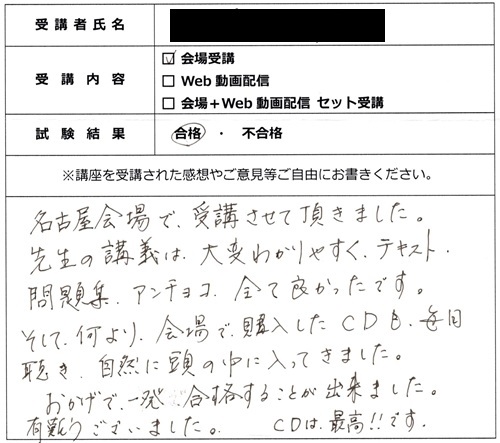 受講者氏名
受講内容
☑ 会場受講
☐ Web動画配信
☐ 会場+Web動画配信 セット受講
試験結果
合格 ・ 不合格
※講座を受講された感想やご意見等ご自由にお書きください。
名古屋会場で、受講させて頂きました。
先生の講義は、大変わかりやすく、テキスト、
問題集、アンチョコ、全て良かったです。
そして、何より、会場で、購入したCDを、毎日
聴き、自然に頭の中に入ってきました。
おかげで、一発合格することが出来ました。
有難うございました。 CDは、最高!!です。